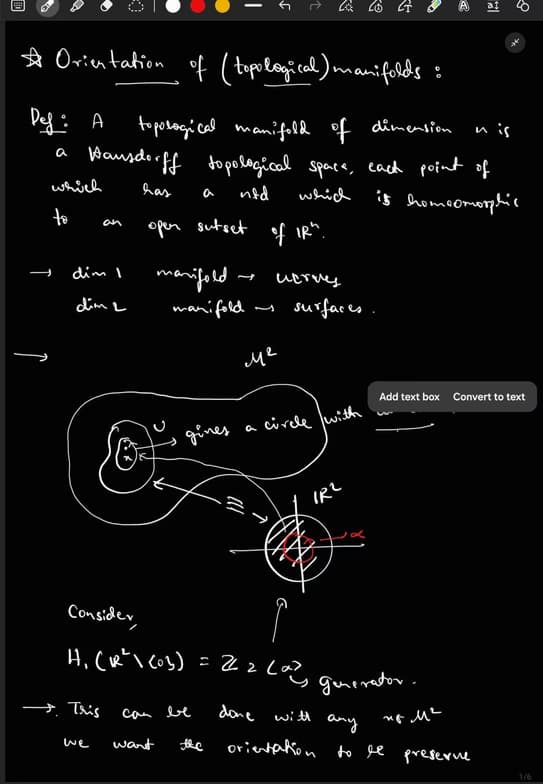 ☆ Orientation of (topological) manifolds :
Def: A topological manifold of dimension n is
a Hausdorff topological space, each point of
which has a nbd which is homeomorphic
to an open subset of ℝⁿ.
→ dim 1 manifold → curves
dim 2 manifold → surfaces.
→ M²
Add text box Convert to text
U → gives a circle with
x
≡
ℝ²
α
Consider,
H₁(ℝ²\{0}) = ℤ = ⟨α⟩
generator.
→. This can be done with any x∈M²
we want the orientation to be preserve
1/6